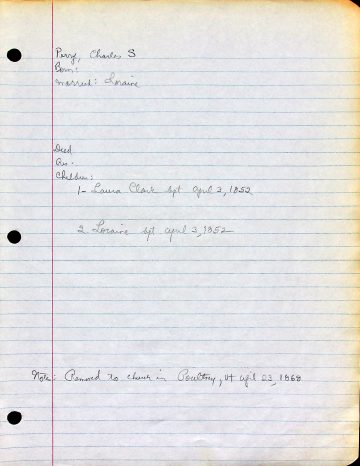 Perry, Charles S
Born:
married: Loraine
Died
Res.
Children:
1- Laura Clark bpt april 3, 1852
2 Loraine bpt april 3, 1852
Note: Removed to church in Poultney, Vt april 23, 1868